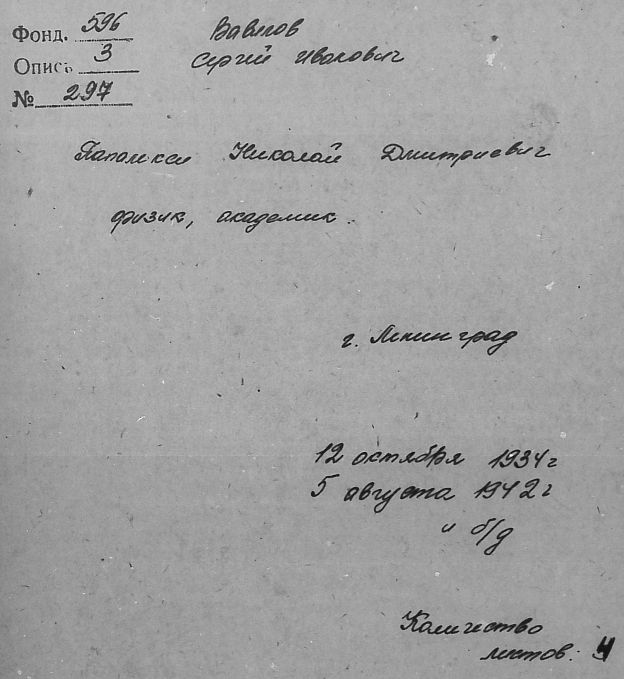 Фонд. 596
Опись 3
№ 297
Вавилов
Сергей Иванович
Папалекси Николай Дмитриевич
физик, академик.
г. Ленинград
12 октября 1934 г
5 августа 1942 г
и б/д
Количество
листов: 4